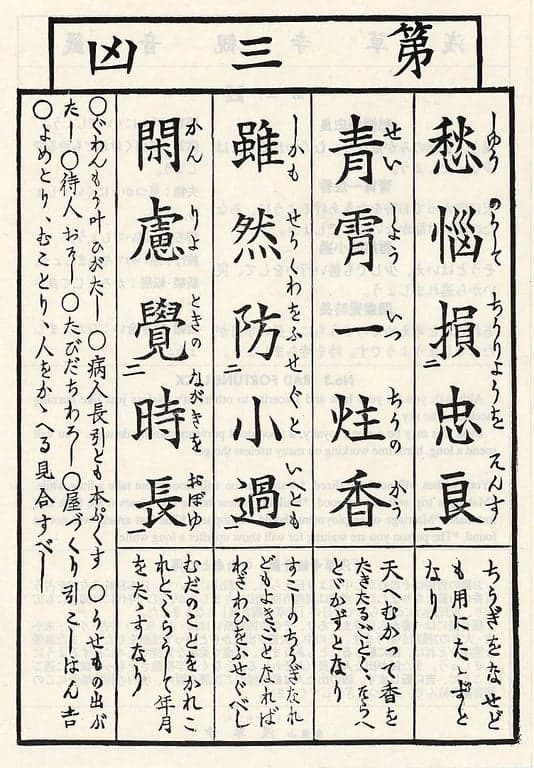 第三凶
しゆうのうして ちうりようを そんす
愁悩損二忠良
ちうぎをなせど
も用にたゝずと
なり
せいしよう いつちうのかう
青霄一炷香
天へむかつて香を
たきたるごとくそらへ
とゞかずとなり
しかも せうくわをふせぐと いへども
雖然防二小過
すこしのちうぎなれ
どもよきことなれば
わざわひをふせぐべし
かんりよ ときのながきを おぼゆ
閑慮覺二時長
むだのことをかれこ
れとくらうして年月
をたすなり
〇ぐわんもう叶ひがたし〇病人長引とも本ぷくす 〇うせもの出が
たし〇待人おそし〇たびだちわろし〇屋づくり引こしはん吉
〇よめとり、むことり、人をかゝへる見合すべし